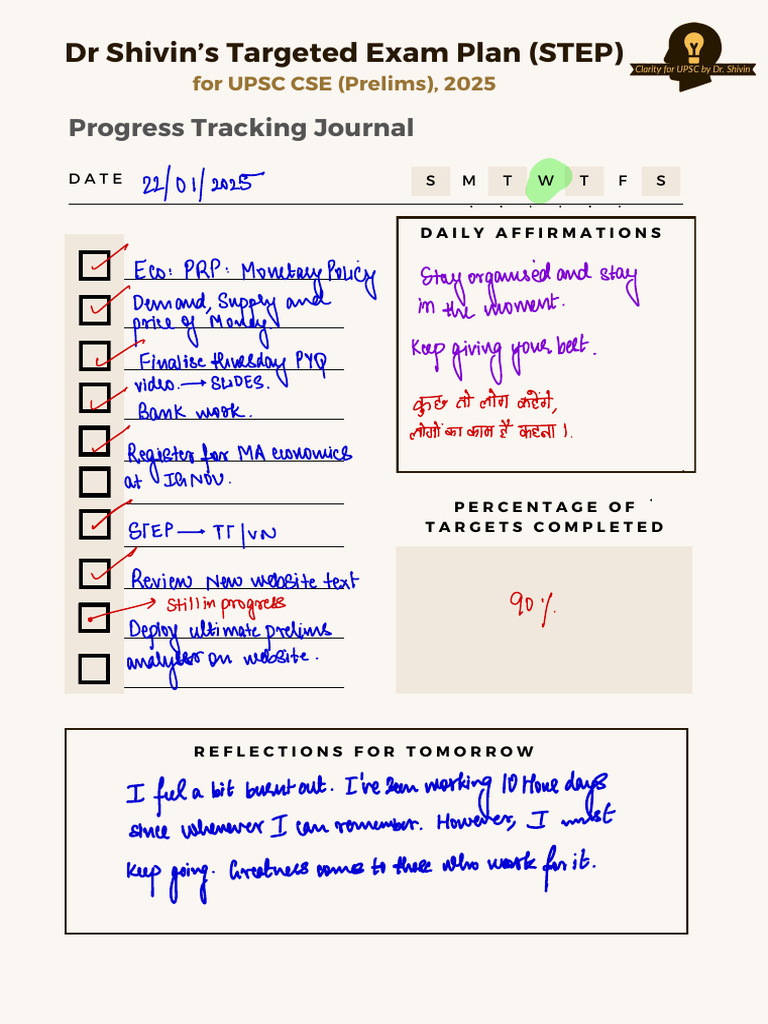 Dr Shivin's Targeted Exam Plan (STEP)
for UPSC CSE (Prelims), 2025
Clarity for UPSC by Dr. Shivin
Progress Tracking Journal
DATE 22/01/2025
S M T W T F S
Eco: PRP: Monetary Policy
Demand, Supply and
price of Money.
Finalise thursday PYQ
video. → SLIDES.
Bank work.
Register for MA economics
at IGNOU.
STEP → TT/VN
Review New website text
Still in progress
Deploy ultimate prelims
analyser on website.
DAILY AFFIRMATIONS
Stay organised and stay
in the moment.
Keep giving your best.
कुछ तो लोग कहेंगे,
लोगों का काम है कहना।
PERCENTAGE OF
TARGETS COMPLETED
90%
REFLECTIONS FOR TOMORROW
I feel a bit burnt out. I've been working 10 Hour days
since whenever I can remember. However, I must
keep going. Greatness comes to those who work for it.